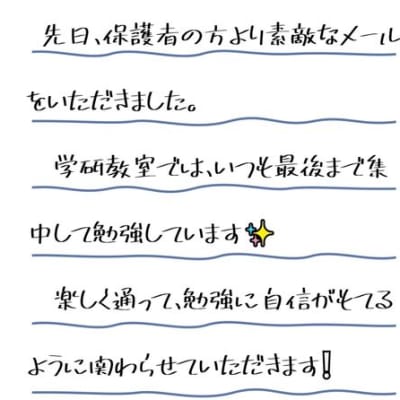 先日、保護者の方より素敵なメール
をいただきました。
学研教室では、いつも最後まで集
中して勉強しています✨
楽しく通って、勉強に自信がもてる
ように関わらせていただきます!